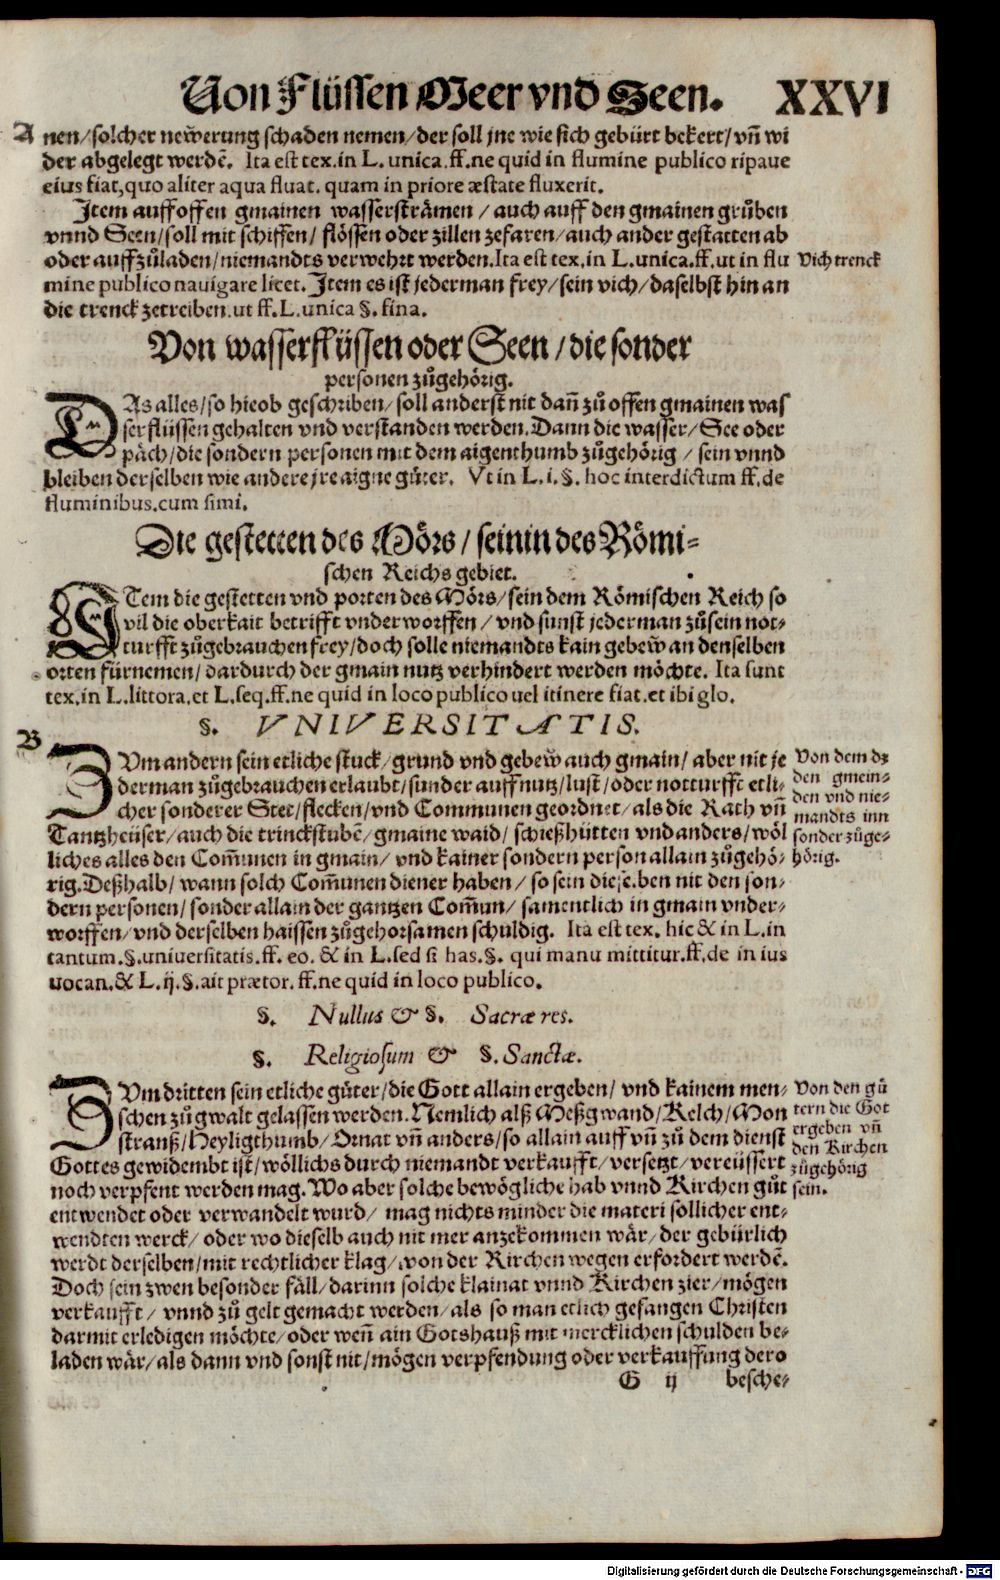 Von Flüssen Meer vnd Seen. XXVI
A nen/solcher newerung schaden nemen/der soll jne wie sich gebürt bekert/vñ wi
der abgelegt werdē. Ita est tex.in L. unica.ff.ne quid in flumine publico ripaue
eius fiat,quo aliter aqua fluat. quam in priore æstate fluxerit.
Item auff offen gmainen wassersträmen / auch auff den gmainen grůben
vnnd Seen/soll mit schiffen/ flössen oder zillen zefaren/auch ander gestatten ab
oder auffzůladen/niemandts verwehrt werden.Ita est tex.in L.unica.ff.ut in flu
Vich trenck
mine publico nauigare licet. Item es ist jederman frey/sein vich/daselbst hin an
die trenck zetreiben.ut ff.L.unica §. fina.
Von wasserflüssen oder Seen/die sonder
personen zůgehörig.
DAs alles/so hieob geschriben/soll anderst nit dañ zů offen gmainen was
serflüssen gehalten vnd verstanden werden.Dann die wasser/See oder
päch/die sondern personen mit dem aigenthumb zůgehörig / sein vnnd
bleiben derselben wie andere jre aigne güter. Vt in L.i.§. hoc interdictum ff.de
fluminibus.cum simi.
Die gestetten des Mörs/seinin des Römi-
schen Reichs gebiet.
ITem die gestetten vnd porten des Mörs/sein dem Römischen Reich so
vil die oberkait betrifft vnderworffen / vnd sunst jederman zůsein not-
turfft zůgebrauchen frey/doch solle niemandts kain gebew an denselben
orten fürnemen/dardurch der gmain nutz verhindert werden möchte. Ita sunt
tex.in L.littora.et L.seq.ff.ne quid in loco publico uel itinere fiat.et ibi glo.
§. VNIVERSITATIS.
B
ZVm andern sein etliche stuck/grund vnd gebew auch gmain/ aber nit je
derman zůgebrauchen erlaubt/sunder auff nutz/lust/oder notturfft etli-
cher sonderer Stet/flecken/vnd Communen geordnet/als die Rath vñ
Tantzheüser/auch die trinckstubē/gmaine waid/ schießhütten vnd anders/wöl
liches alles den Com̃unen in gmain/ vnd kainer sondern person allain zůgehö-
rig.Deßhalb/wann solch Com̃unen diener haben / so sein dieselben nit den son-
dern personen/sonder allain der gantzen Com̃un/ samentlich in gmain vnder-
worffen/vnd derselben haissen zůgehorsamen schuldig. Ita est tex. hic & in L.in
tantum.§.universitatis.ff. eo. & in L.sed si has.§. qui manu mittitur.ff.de in ius
uocan.& L.ij.§.ait prætor.ff.ne quid in loco publico.
Von dem dz
den gmein-
den vnd nie-
mandts inn
sonder zůge-
hörig.
§. Nullus & §. Sacræ res.
§. Religiosum & §. Sanctæ.
ZVm dritten sein etliche güter/die Gott allain ergeben/ vnd kainem men-
schen zů gwalt gelassen werden.Nemlich alß Meßgwand/Kelch/Mon
stranß/Heyligthumb/Ornat vñ anders/so allain auff vñ zů dem dienst
Gottes gewidembt ist/wöllichs durch niemandt verkaufft/versetzt/vereüssert
noch verpfent werden mag.Wo aber solche bewögliche hab vnnd Kirchen gůt
entwendet oder verwandelt wurd/ mag nichts minder die materi sollicher ent-
wendten werck/ oder wo dieselb auch nit mer anzekommen wär/der gebürlich
werdt derselben/mit rechtlicher klag/von der Kirchen wegen erfordert werdē.
Doch sein zwen besonder fäll/darinn solche klainat vnnd Kirchen zier/mögen
verkaufft/ vnnd zů gelt gemacht werden/als so man etlich gefangen Christen
darmit erledigen möchte/oder weñ ain Gotshauß mit mercklichen schulden be-
laden wär/als dann vnd sonst nit/mögen verpfendung oder verkauffung dero
Von den gü
tern die Got
ergeben vñ
den Kirchen
zůgehörig
sein.
G ij besche-
Digitalisierung gefördert durch die Deutsche Forschungsgemeinschaft - DFG